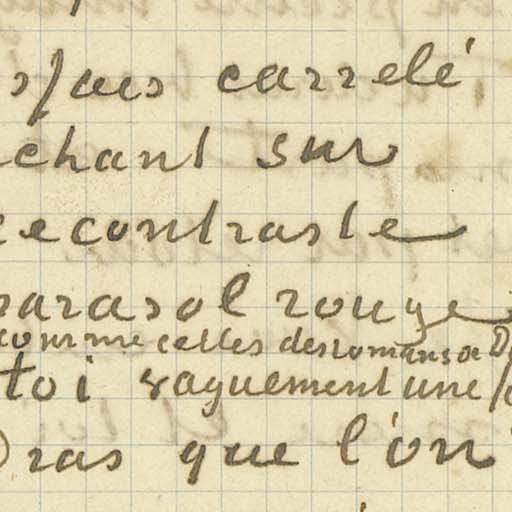 carrelé
chant sur
contraste
parasol rouge
comme celles des romans de
toi vaguement une
que l'on